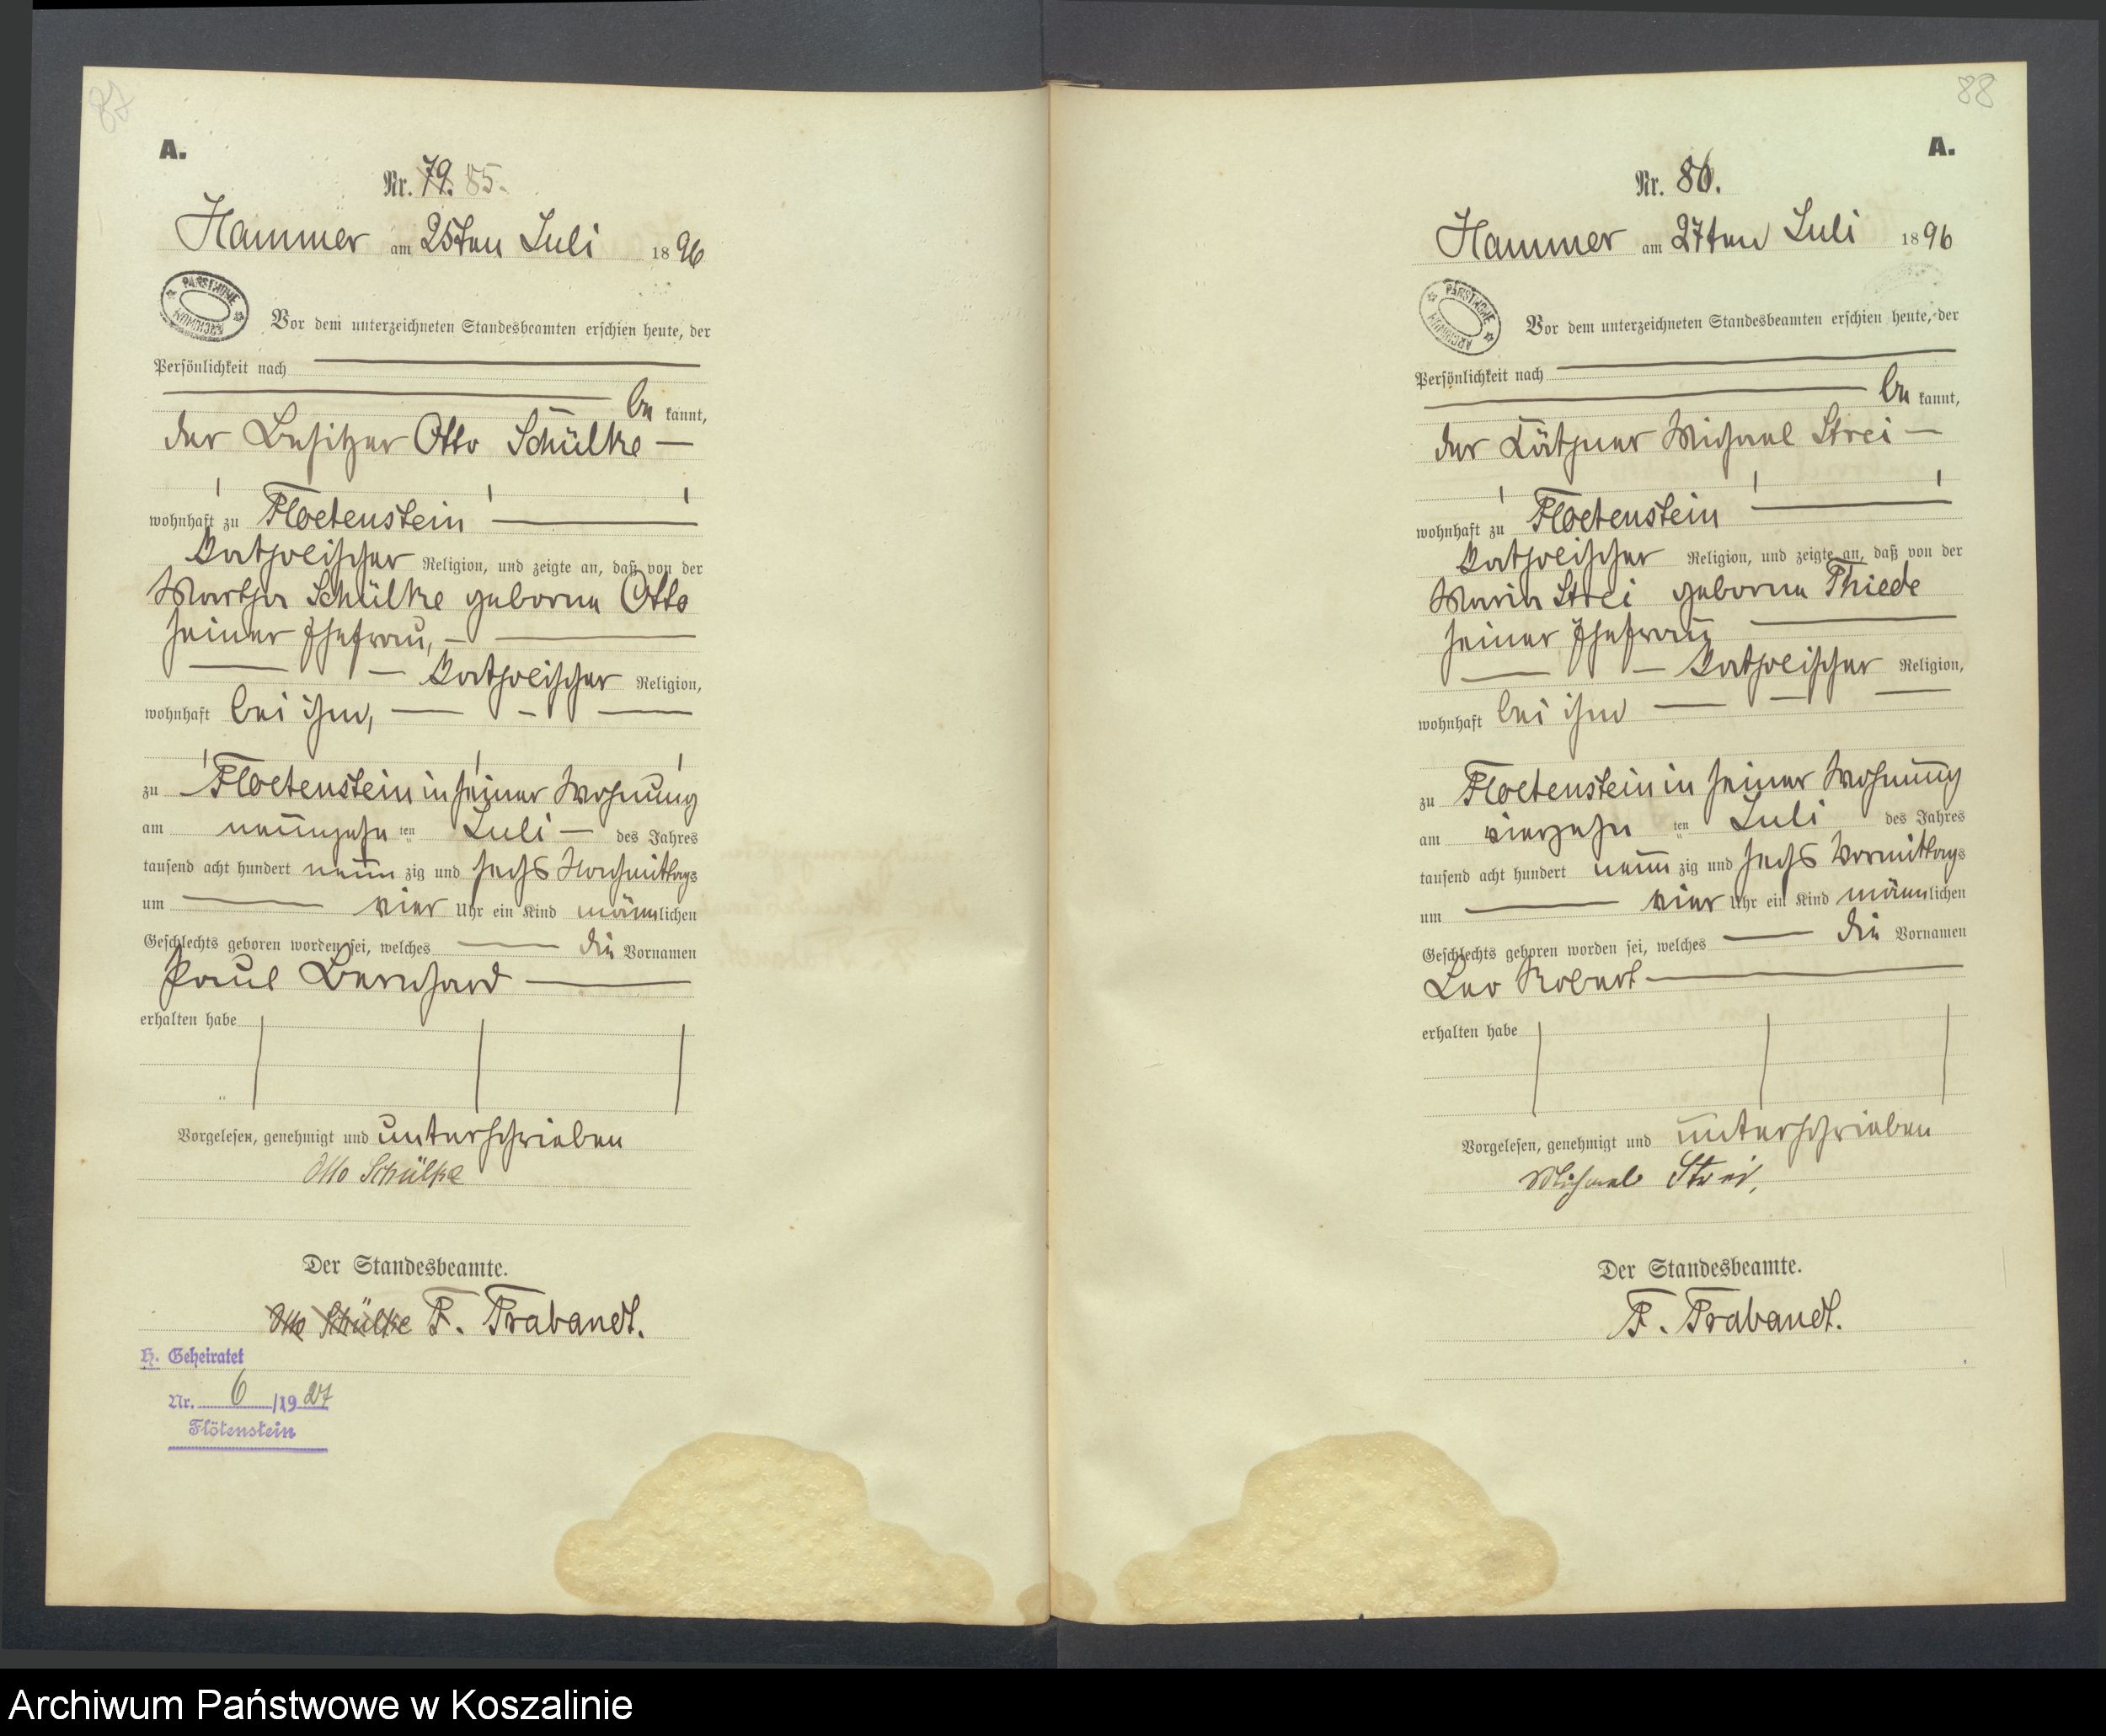 87
A.
Nr. 79. 85.
Hammer am 25ten Juli 1896
PAŃSTWOWE ARCHIWUM
Vor dem unterzeichneten Standesbeamten erschien heute, der
Persönlichkeit nach
be kannt,
der Besitzer Otto Schülke
wohnhaft zu Floetenstein
katholischer Religion, und zeigte an, daß von der
Martha Schülke geborne Otto
seiner Ehefrau,
katholischer Religion,
wohnhaft bei ihm,
zu Floetenstein in seiner Wohnung
am neunzehn ten Juli des Jahres
tausend acht hundert neun zig und sechs Nachmittags
um vier Uhr ein Kind männlichen
Geschlechts geboren worden sei, welches die Vornamen
Paul Bernhard
erhalten habe
Vorgelesen, genehmigt und unterschrieben
Otto Schülke
Der Standesbeamte.
Otto Schülke F. Trabandt.
H. Geheiratet
Nr. 6 /1927
Flötenstein
88
A.
Nr. 86.
Hammer am 27ten Juli 1896
PAŃSTWOWE ARCHIWUM
Vor dem unterzeichneten Standesbeamten erschien heute, der
Persönlichkeit nach
be kannt,
der Käthner Michael Strei
wohnhaft zu Floetenstein
katholischer Religion, und zeigte an, daß von der
Maria Strei geborne Thiede
seiner Ehefrau
katholischer Religion,
wohnhaft bei ihm
zu Floetenstein in seiner Wohnung
am vierzehn ten Juli des Jahres
tausend acht hundert neun zig und sechs Vormittags
um vier Uhr ein Kind männlichen
Geschlechts geboren worden sei, welches die Vornamen
Leo Robert
erhalten habe
Vorgelesen, genehmigt und unterschrieben
Michael Strei,
Der Standesbeamte.
F. Trabandt.
Archiwum Państwowe w Koszalinie